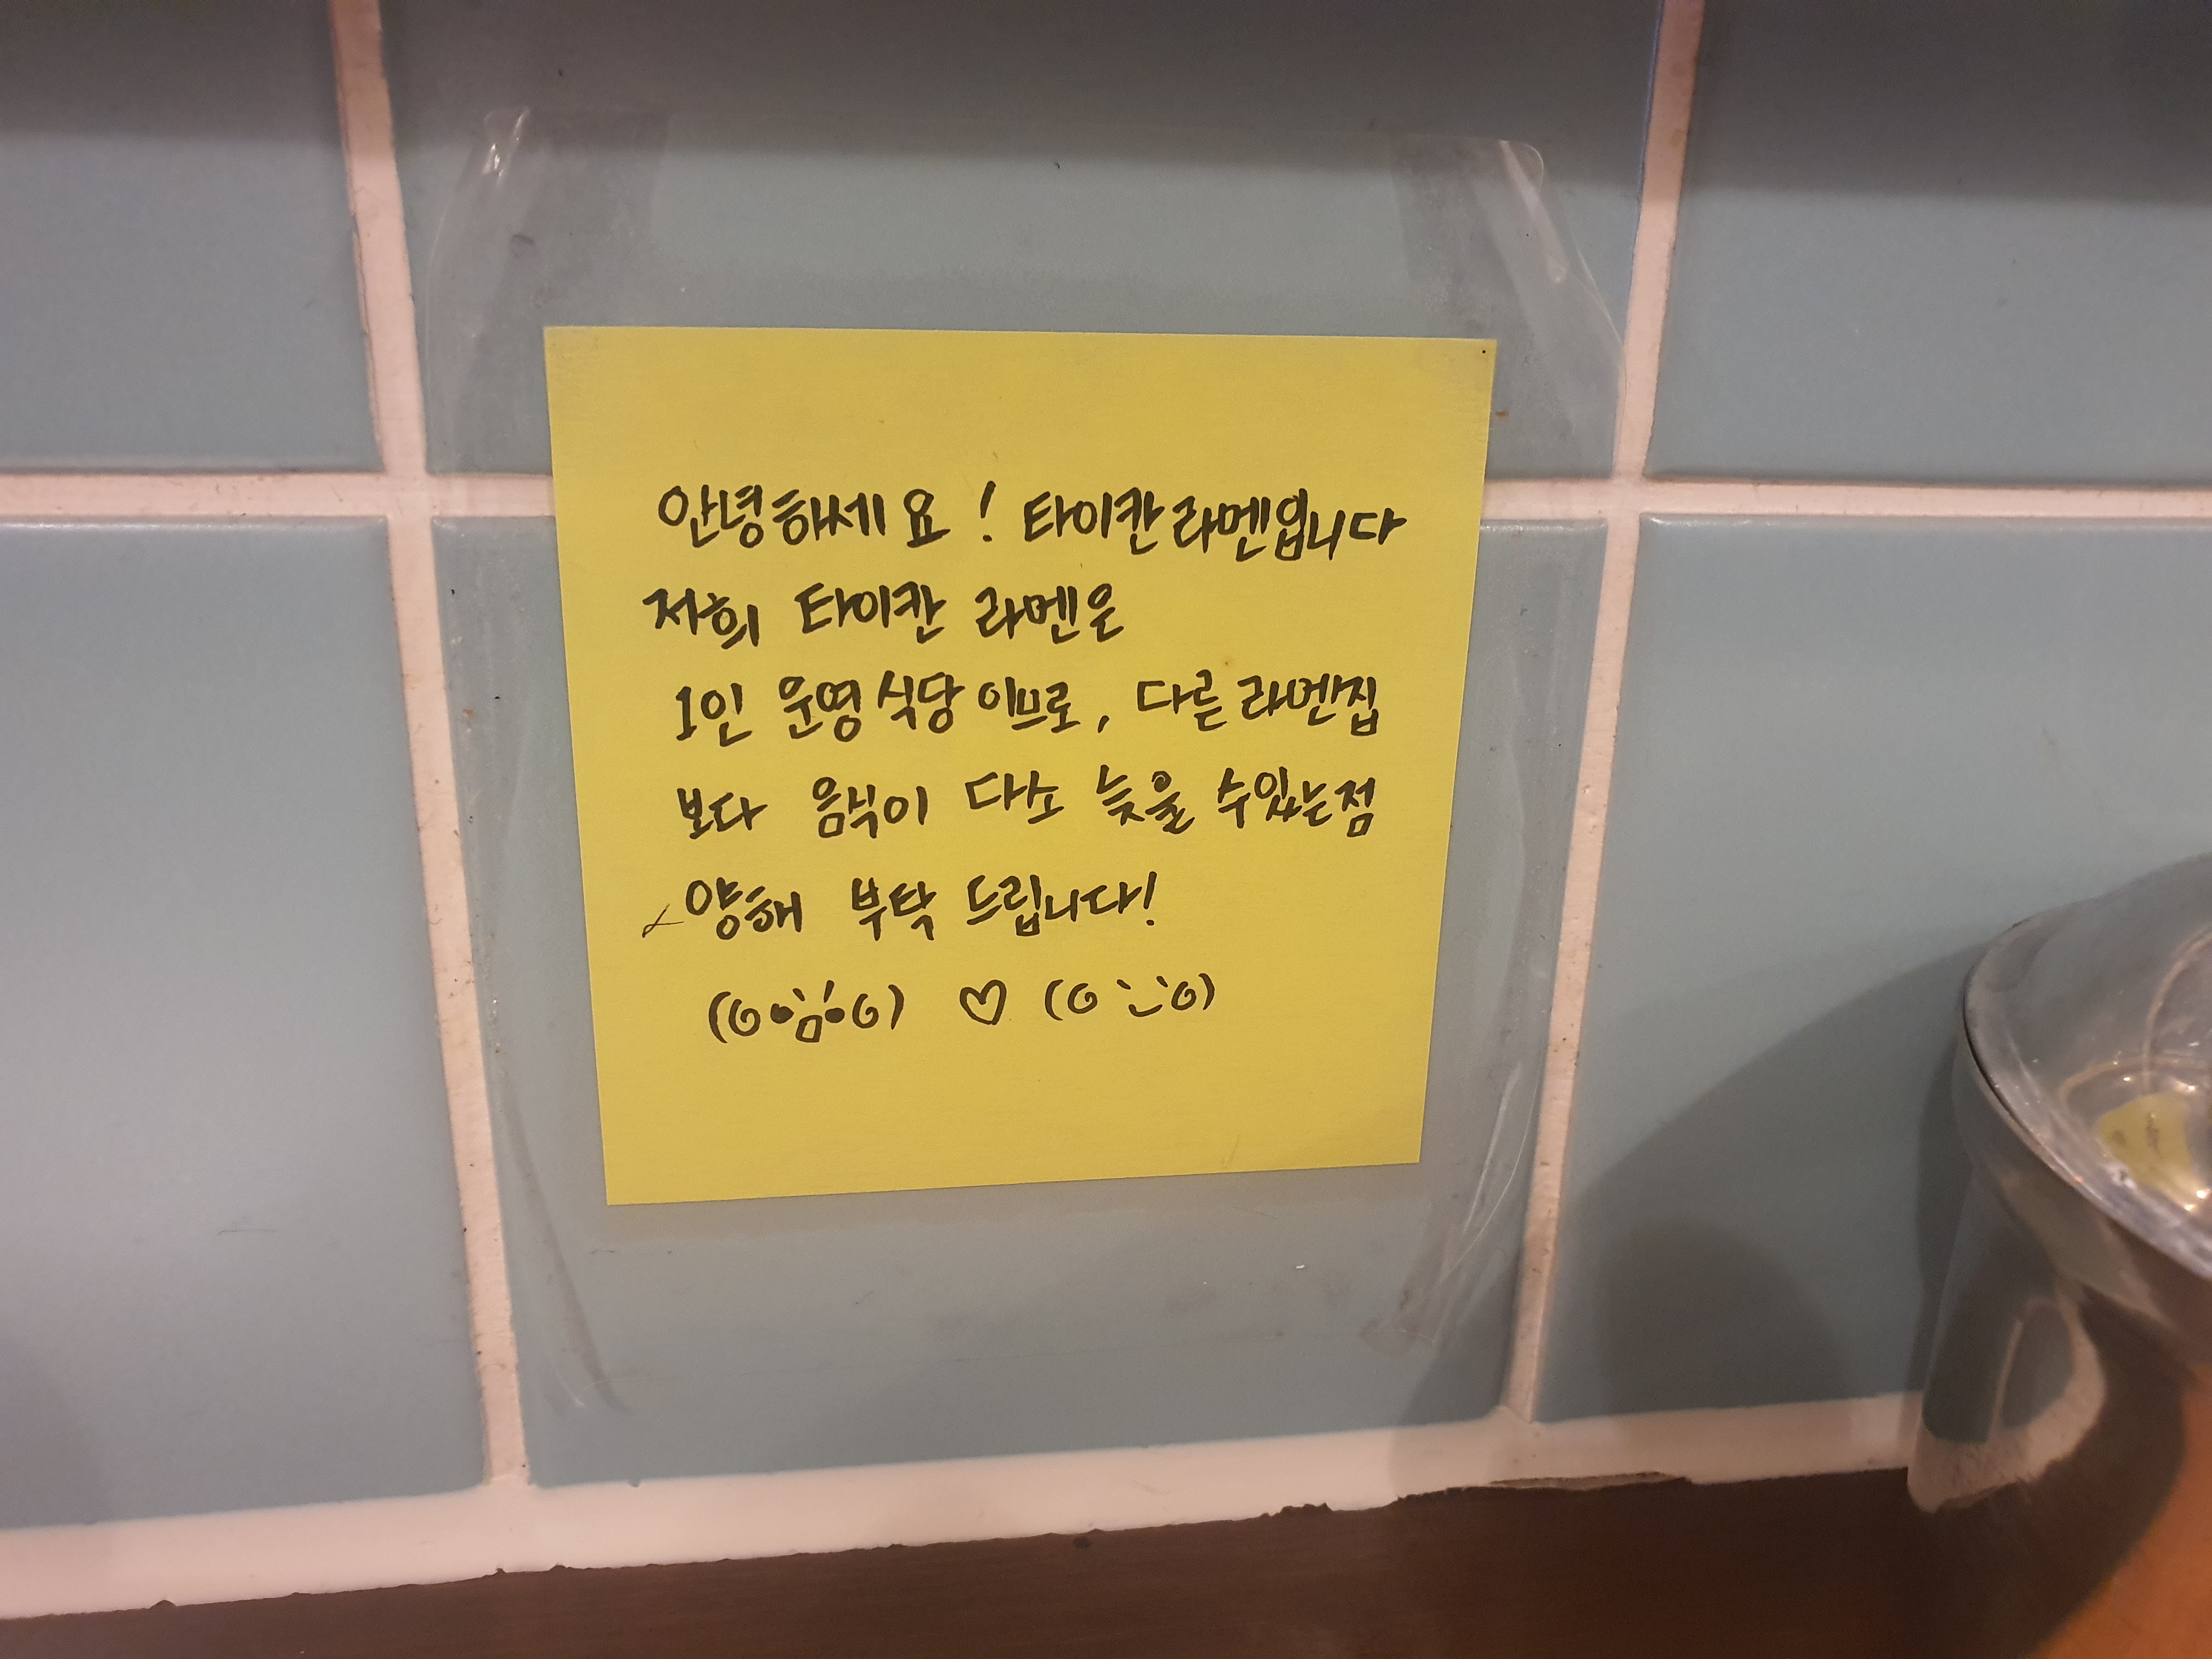 안녕하세요! 타이칸라멘입니다
저희 타이칸 라멘은
1인 운영식당이므로, 다른라멘집
보다 음식이 다소 늦을 수있는점
양해 부탁 드립니다!